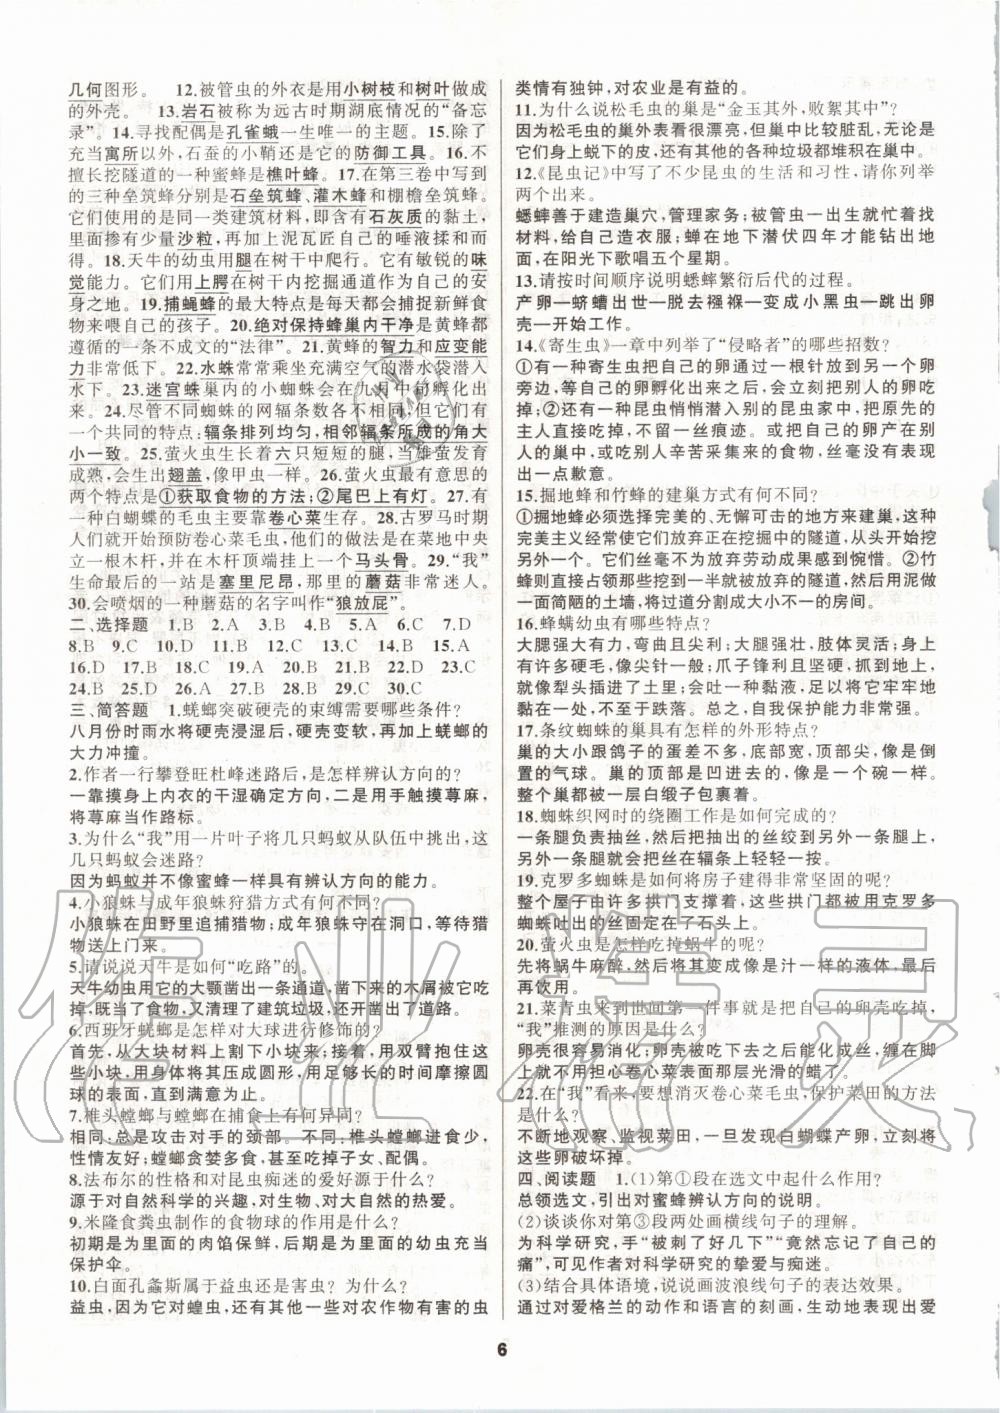 几何图形。 12.被管虫的外衣是用小树枝和树叶做成
的外壳。 13.岩石被称为远古时期湖底情况的“备忘
录”。14.寻找配偶是孔雀蛾一生唯一的主题。15.除了
充当寓所以外,石蚕的小鞘还是它的防御工具。16.不
擅长挖隧道的一种蜜蜂是樵叶蜂。17.在第三卷中写到
的三种垒筑蜂分别是石垒筑蜂、灌木蜂和棚檐垒筑蜂。
它们使用的是同一类建筑材料,即含有石灰质的黏土,
里面掺有少量沙粒,再加上泥瓦匠自己的唾液揉和而
成。18.天牛的幼虫用腿在树干中爬行。它有敏锐的味
觉能力。它们用上腭在树干内挖掘通道作为自己的安
身之地。19.捕蝇蜂的最大特点是每天都会捕捉新鲜食
物来喂自己的孩子。20.绝对保持蜂巢内干净是黄蜂都
遵循的一条不成文的“法律”。21.黄蜂的智力和应变能
力非常低下。22.水蛛常常乘坐充满空气的潜水袋潜入
水下。23.迷宫蛛巢里的小蜘蛛会在九月中旬孵化出
来。24.尽管不同蜘蛛的网辐条数各不相同,但它们都
有一个共同的特点:辐条排列均匀,相邻辐条所成的角大
小一致。25.萤火虫生长着六只短短的腿,当雄萤发育
成熟,会生出翅盖,像甲虫一样。26.萤火虫最有意思的
两个特点是①获取食物的方法;②尾巴上有灯。27.有
一种白蝴蝶的毛虫主要靠卷心菜生存。28.古罗马时期
人们就开始预防卷心菜毛虫,他们的做法是在菜地中央
立一根木杆,并在木杆顶端挂上一个马头骨。29.“我”
生命最后的一站是塞里尼昂,那里的蘑菇非常迷人。
30.会喷烟的一种蘑菇的名字叫作“狼放屁”。
二、选择题 1.B 2.A 3.B 4.B 5.A 6.C 7.D
8.B 9.C 10.D 11.B 12.B 13.C 14.B 15.A
16.D 17.B 18.C 19.A 20.D 21.A 22.D 23.C
24.B 25.B 26.A 27.B 28.C 29.B 30.C
三、简答题 1.蜣螂突破硬壳的束缚需要哪些条件?
八月份时雨水将硬壳浸湿后,硬壳变软,再加上蜣螂的
大力冲撞。
2.作者一行攀登旺杜峰迷路后,是怎样辨认方向的?
一靠摸身上内衣的干湿确定方向,二是用手触摸荨麻,
将荨麻当作路标。
3.为什么“我”用一片叶子将几只蚂蚁从队伍中挑出,这
几只蚂蚁会迷路?
因为蚂蚁并不像蜜蜂一样具有辨认方向的能力。
4.小狼蛛与成年狼蛛狩猎方式有何不同?
小狼蛛在田野里追捕猎物;成年狼蛛守在洞口,等待猎
物送上门来。
5.请说说天牛是如何“吃路”的。
天牛幼虫用它的大颚凿出一条通道,凿下来的木屑被它
吃掉,既当了食物,又清理了建筑垃圾,还开凿出了道路。
6.西班牙蜣螂是怎样对大球进行修饰的?
首先,从大块材料上割下小块来;接着,用双臂抱住这
些小块,用身体将其压成圆形,用足够长的时间摩擦圆
球的表面,直到满意为止。
7.椎头螳螂与螳螂在捕食上有何异同?
相同:总是攻击对手的颈部。不同:椎头螳螂进食少,
性情友好;螳螂贪婪多食,甚至吃掉子女、配偶。
8.法布尔的性格和对昆虫痴迷的爱好源于什么?
源于对自然科学的兴趣,对生物、对大自然的热爱。
9.米隆食粪虫制作的食物球的作用是什么?
初期是为里面的肉馅保鲜,后期是为里面的幼虫充当
保护伞。
10.白面孔螽斯属于益虫还是害虫? 为什么?
益虫,因为它对蝗虫,还有其他一些对农作物有害的虫
类情有独钟,对农业是有益的。
11.为什么说松毛虫的巢是“金玉其外,败絮其中”?
因为松毛虫的巢外表看很漂亮,但巢中比较脏乱,无论是
它们身上蜕下的皮,还有其他的各种垃圾都堆积在巢中。
12.《昆虫记》中写了不少昆虫的生活和习性,请你列举
两个出来。
蟋蟀善于建造巢穴,管理家务;被管虫一出生就忙着找
材料,给自己造衣服;蝉在地下潜伏四年才能钻出地
面,在阳光下歌唱五个星期。
13.请按时间顺序说明蟋蟀繁衍后代的过程。
产卵—蛴螬出世—脱去襁褓—变成小黑虫—跳出卵
壳—开始工作。
14.《寄生虫》一章中列举了“侵略者”的哪些招数?
①有一种寄生虫把自己的卵通过一根针放到另一个卵
旁边,等自己的卵孵化出来之后,会立刻把别人的卵吃
掉;②还有一种昆虫悄悄潜入别的昆虫家中,把原先的
主人直接吃掉,不留下一丝痕迹。或把自己的卵产在别
人的巢中,或吃掉别人辛苦采集来的食物,丝毫不会表现
出一点歉意。
15.掘地蜂和竹蜂的建巢方式有何不同?
①掘地蜂必须选择完美的、无懈可击的地方来建巢,这种
完美主义经常使它们放弃已经挖了很多的隧道,从头开始
挖另外一个。它们丝毫不为放弃劳动成果感到惋惜。②竹
蜂则直接占领那些挖到一半就被放弃的隧道,然后用泥做
一面简陋的土墙,将过道分割成大小不一的房间。
16.蜂螨幼虫有哪些特点?
大腮强大有力,弯曲且尖利;大腿强壮,肢体灵活;身上
有许多硬毛,像尖针一般;爪子锋利且坚硬,抓到地上,
就像犁头插进了土里;会吐一种黏液,可以将它牢牢地
黏在一处,不至于跌落。总之,自我保护能力非常强。
17.条纹蜘蛛的巢具有怎样的外形特点?
巢的大小跟鸽子的蛋差不多,底部宽,顶部尖,像是倒
置的气球。巢的顶部是凹进去的,像是一个碗一样。
整个巢都被一层白缎子包裹着。
18.蜘蛛织网时的绕圈工作是如何完成的?
一条腿负责抽丝,然后把抽出的丝绞到另外一条腿上,
另外一条腿就会把丝在辐条上轻轻一按。
19.克罗多蜘蛛是如何将房子建得非常坚固的呢?
整个屋子由许多拱门支撑着,这些拱门都被用克罗多
蜘蛛吐出的丝固定在了石头上。
20.萤火虫是怎样吃掉蜗牛的呢?
先将蜗牛麻醉,然后将其变成像是汁一样的液体,最后
再饮用。
21.菜青虫来到世间第一件事就是把自己的卵壳吃掉,
“我”推测的原因是什么?
卵壳很容易消化;卵壳被吃下之后能化成丝,缠在脚
上,就不用担心卷心菜表面那层光滑的蜡了。
22.在“我”看来,要想消灭卷心菜毛虫,保护菜田的方法
是什么?
不断地观察、监视菜田,一旦发现白蝴蝶产卵,立刻将
这些卵破坏掉。
四、阅读题 1.(1)第①段在选文中起什么作用?
总领选文,引出对蜜蜂辨认方向的说明。
(2)谈谈你对第③段两处画横线句子的理解。
为科学研究,手“被刺了好几下”“竟然忘记了自己的
痛”,可见作者对科学研究的挚爱与痴迷。
(3)结合具体语境,说说画波浪线句子的表达效果。
通过对爱格兰的动作和语言的刻画,生动地表现出爱
6
作业精灵